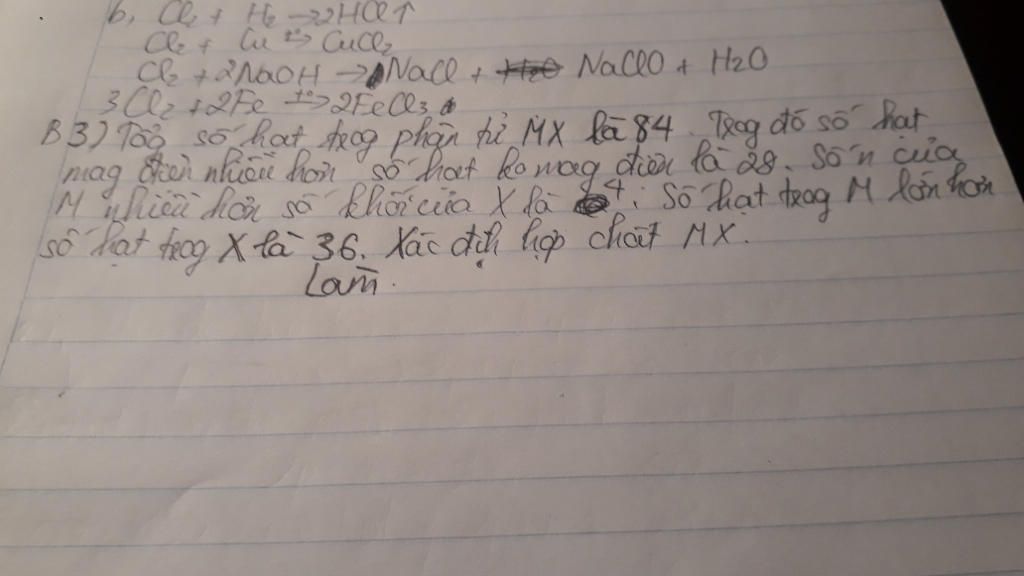 b, Cl2 + H2 → 2HCl↑
Cl2 + Cu t°→ CuCl2
Cl2 + 2NaOH → NaCl + NaClO + H2O
3Cl2 + 2Fe t°→ 2FeCl3
B3) Tổg số hạt trog phân tử MX là 84. Trog đó số hạt
mag điện nhiều hơn số hạt ko mag điện là 28. Số n của
M nhiều hơn số khối của X là 4. Số hạt trog M lớn hơn
số hạt trog X là 36. Xác địh hợp chất MX.
Làm.